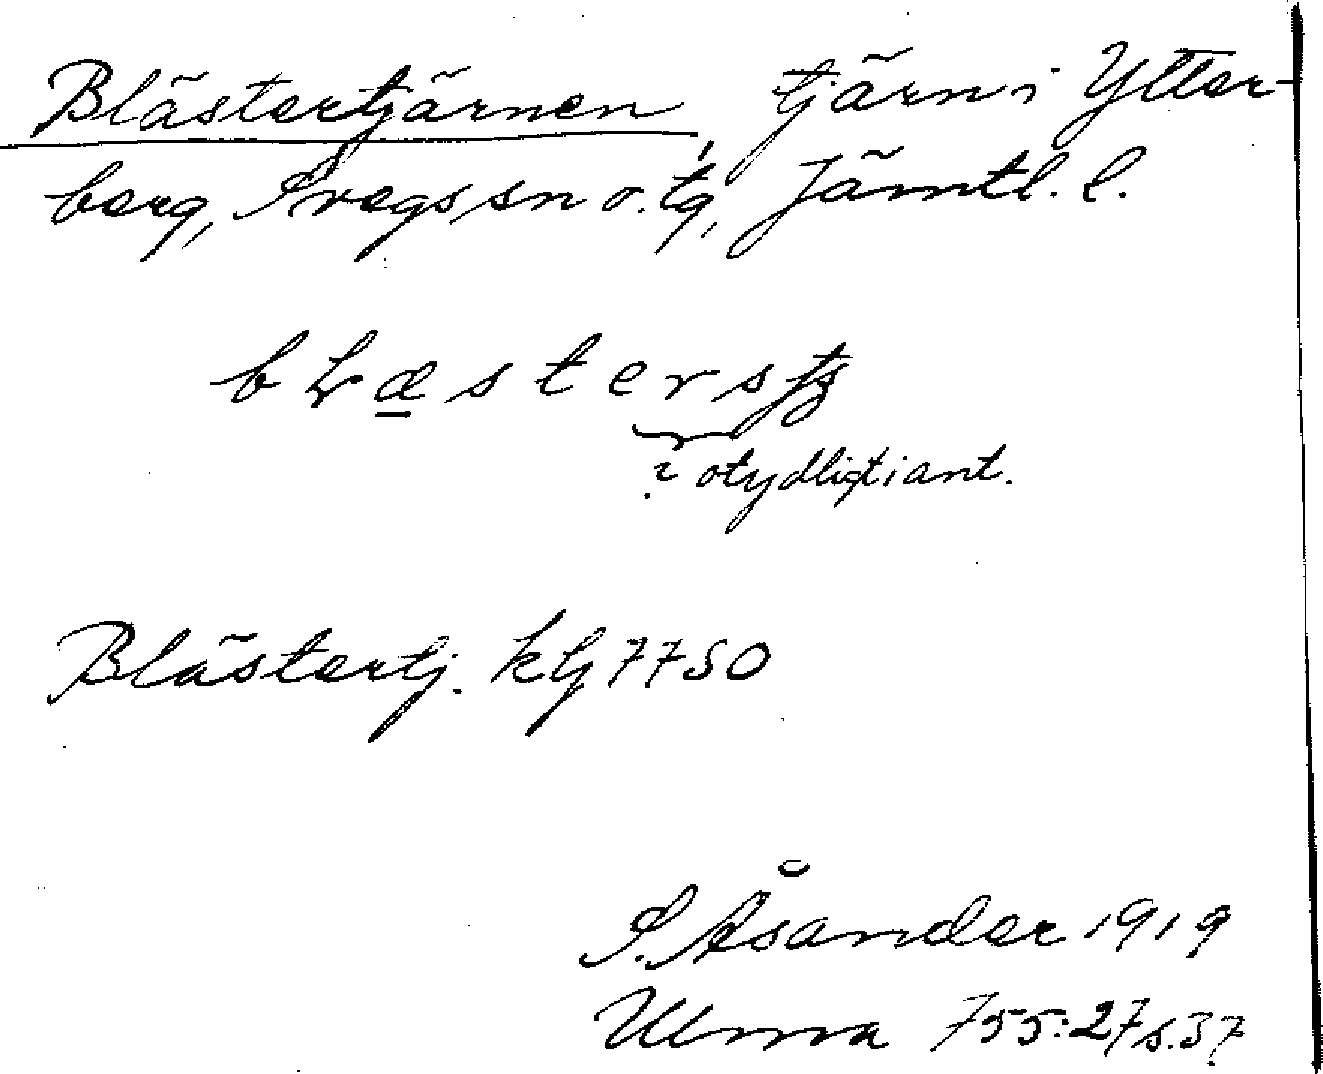 Blästertjärnen, tjärn i Ytter-
berg, Svegs sn o. tg, Jämtl. l.
bLæsters
? otydligt i ant.
Blästertj. ktj 7750
S. Åsander 1919
Ulma 755:27 s. 37